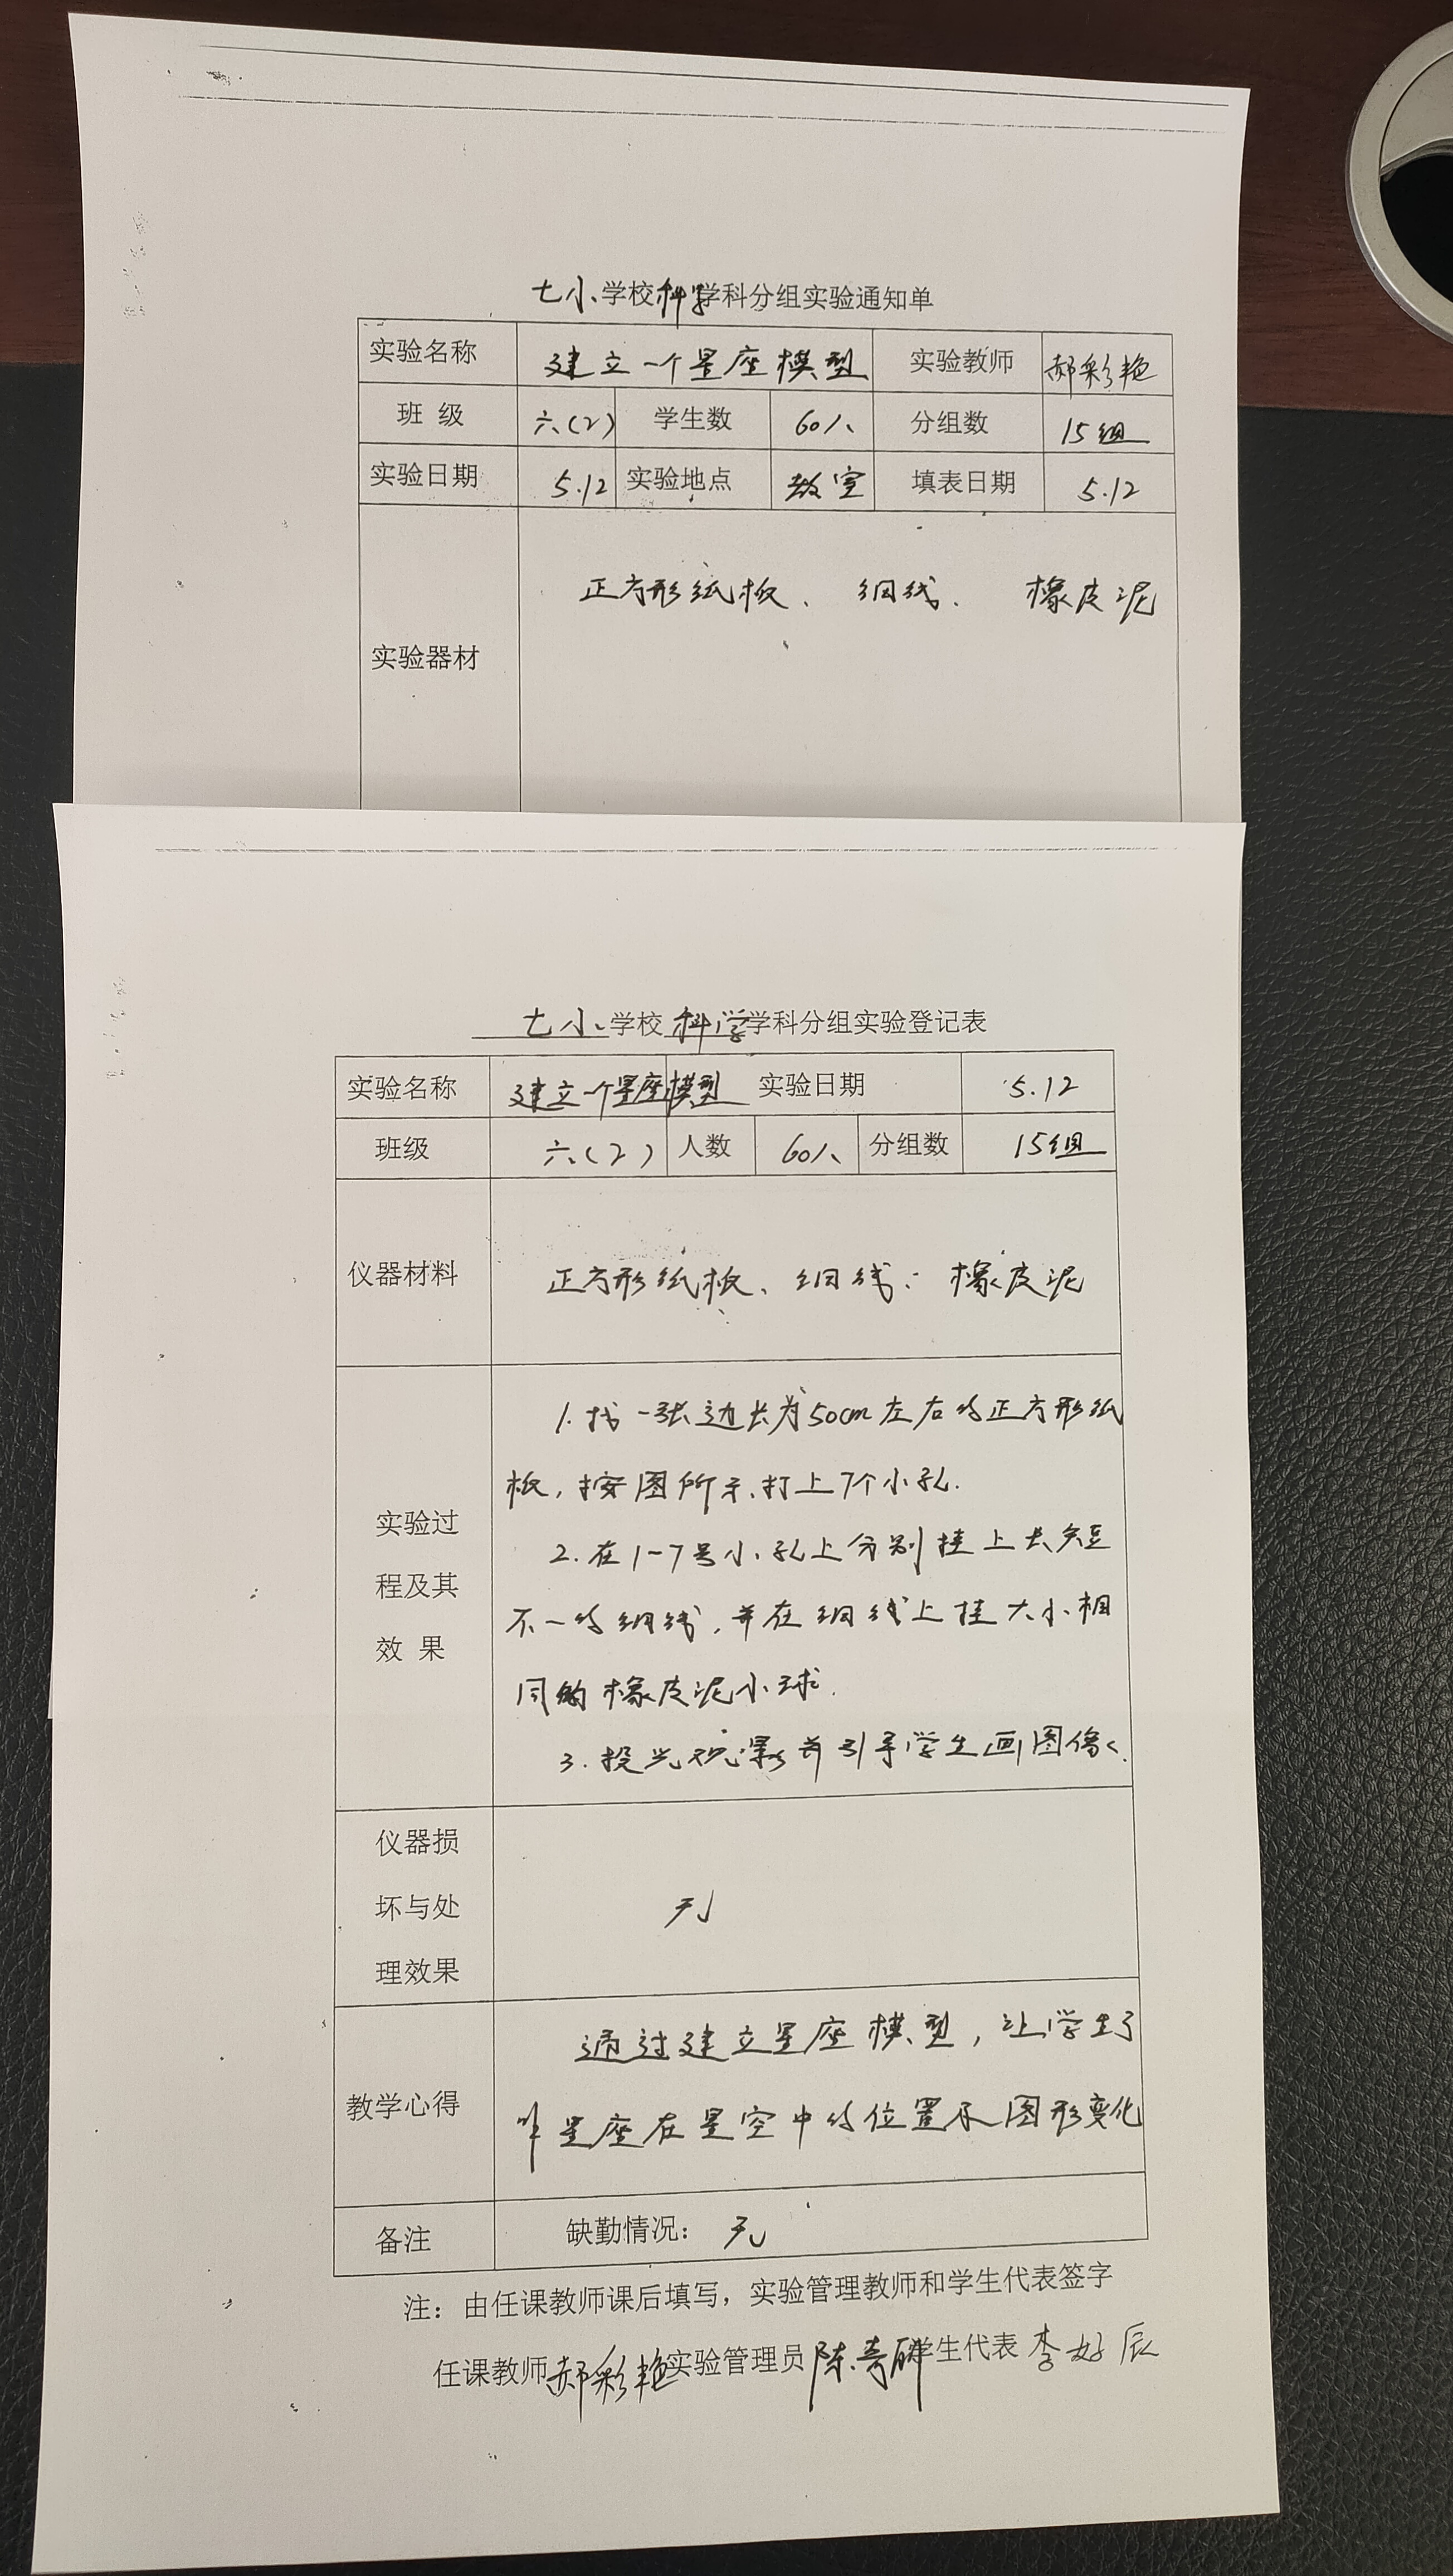 七小学校科学学科分组实验通知单
实验名称 建立一个星座模型 实验教师 郝彩艳
班 级 六(2) 学生数 60人 分组数 15组
实验日期 5.12 实验地点 教室 填表日期 5.12
实验器材 正方形纸板、细线、橡皮泥
七小学校科学学科分组实验登记表
实验名称 建立一个星座模型 实验日期 5.12
班级 六(2) 人数 60人 分组数 15组
仪器材料 正方形纸板、细线、橡皮泥
实验过
程及其
效 果
1.找一张边长为50cm左右的正方形纸
板,按图所示,打上7个小孔.
2.在1-7号小孔上分别挂上长短
不一的细线,并在细线上挂大小相
同的橡皮泥小球.
3.投光观察并引导学生画图像.
仪器损
坏与处
理效果
无
教学心得
通过建立星座模型,让学生了
解星座在星空中的位置及图形变化
备注 缺勤情况: 无
注:由任课教师课后填写,实验管理教师和学生代表签字
任课教师郝彩艳实验管理员陈奇 学生代表李好辰